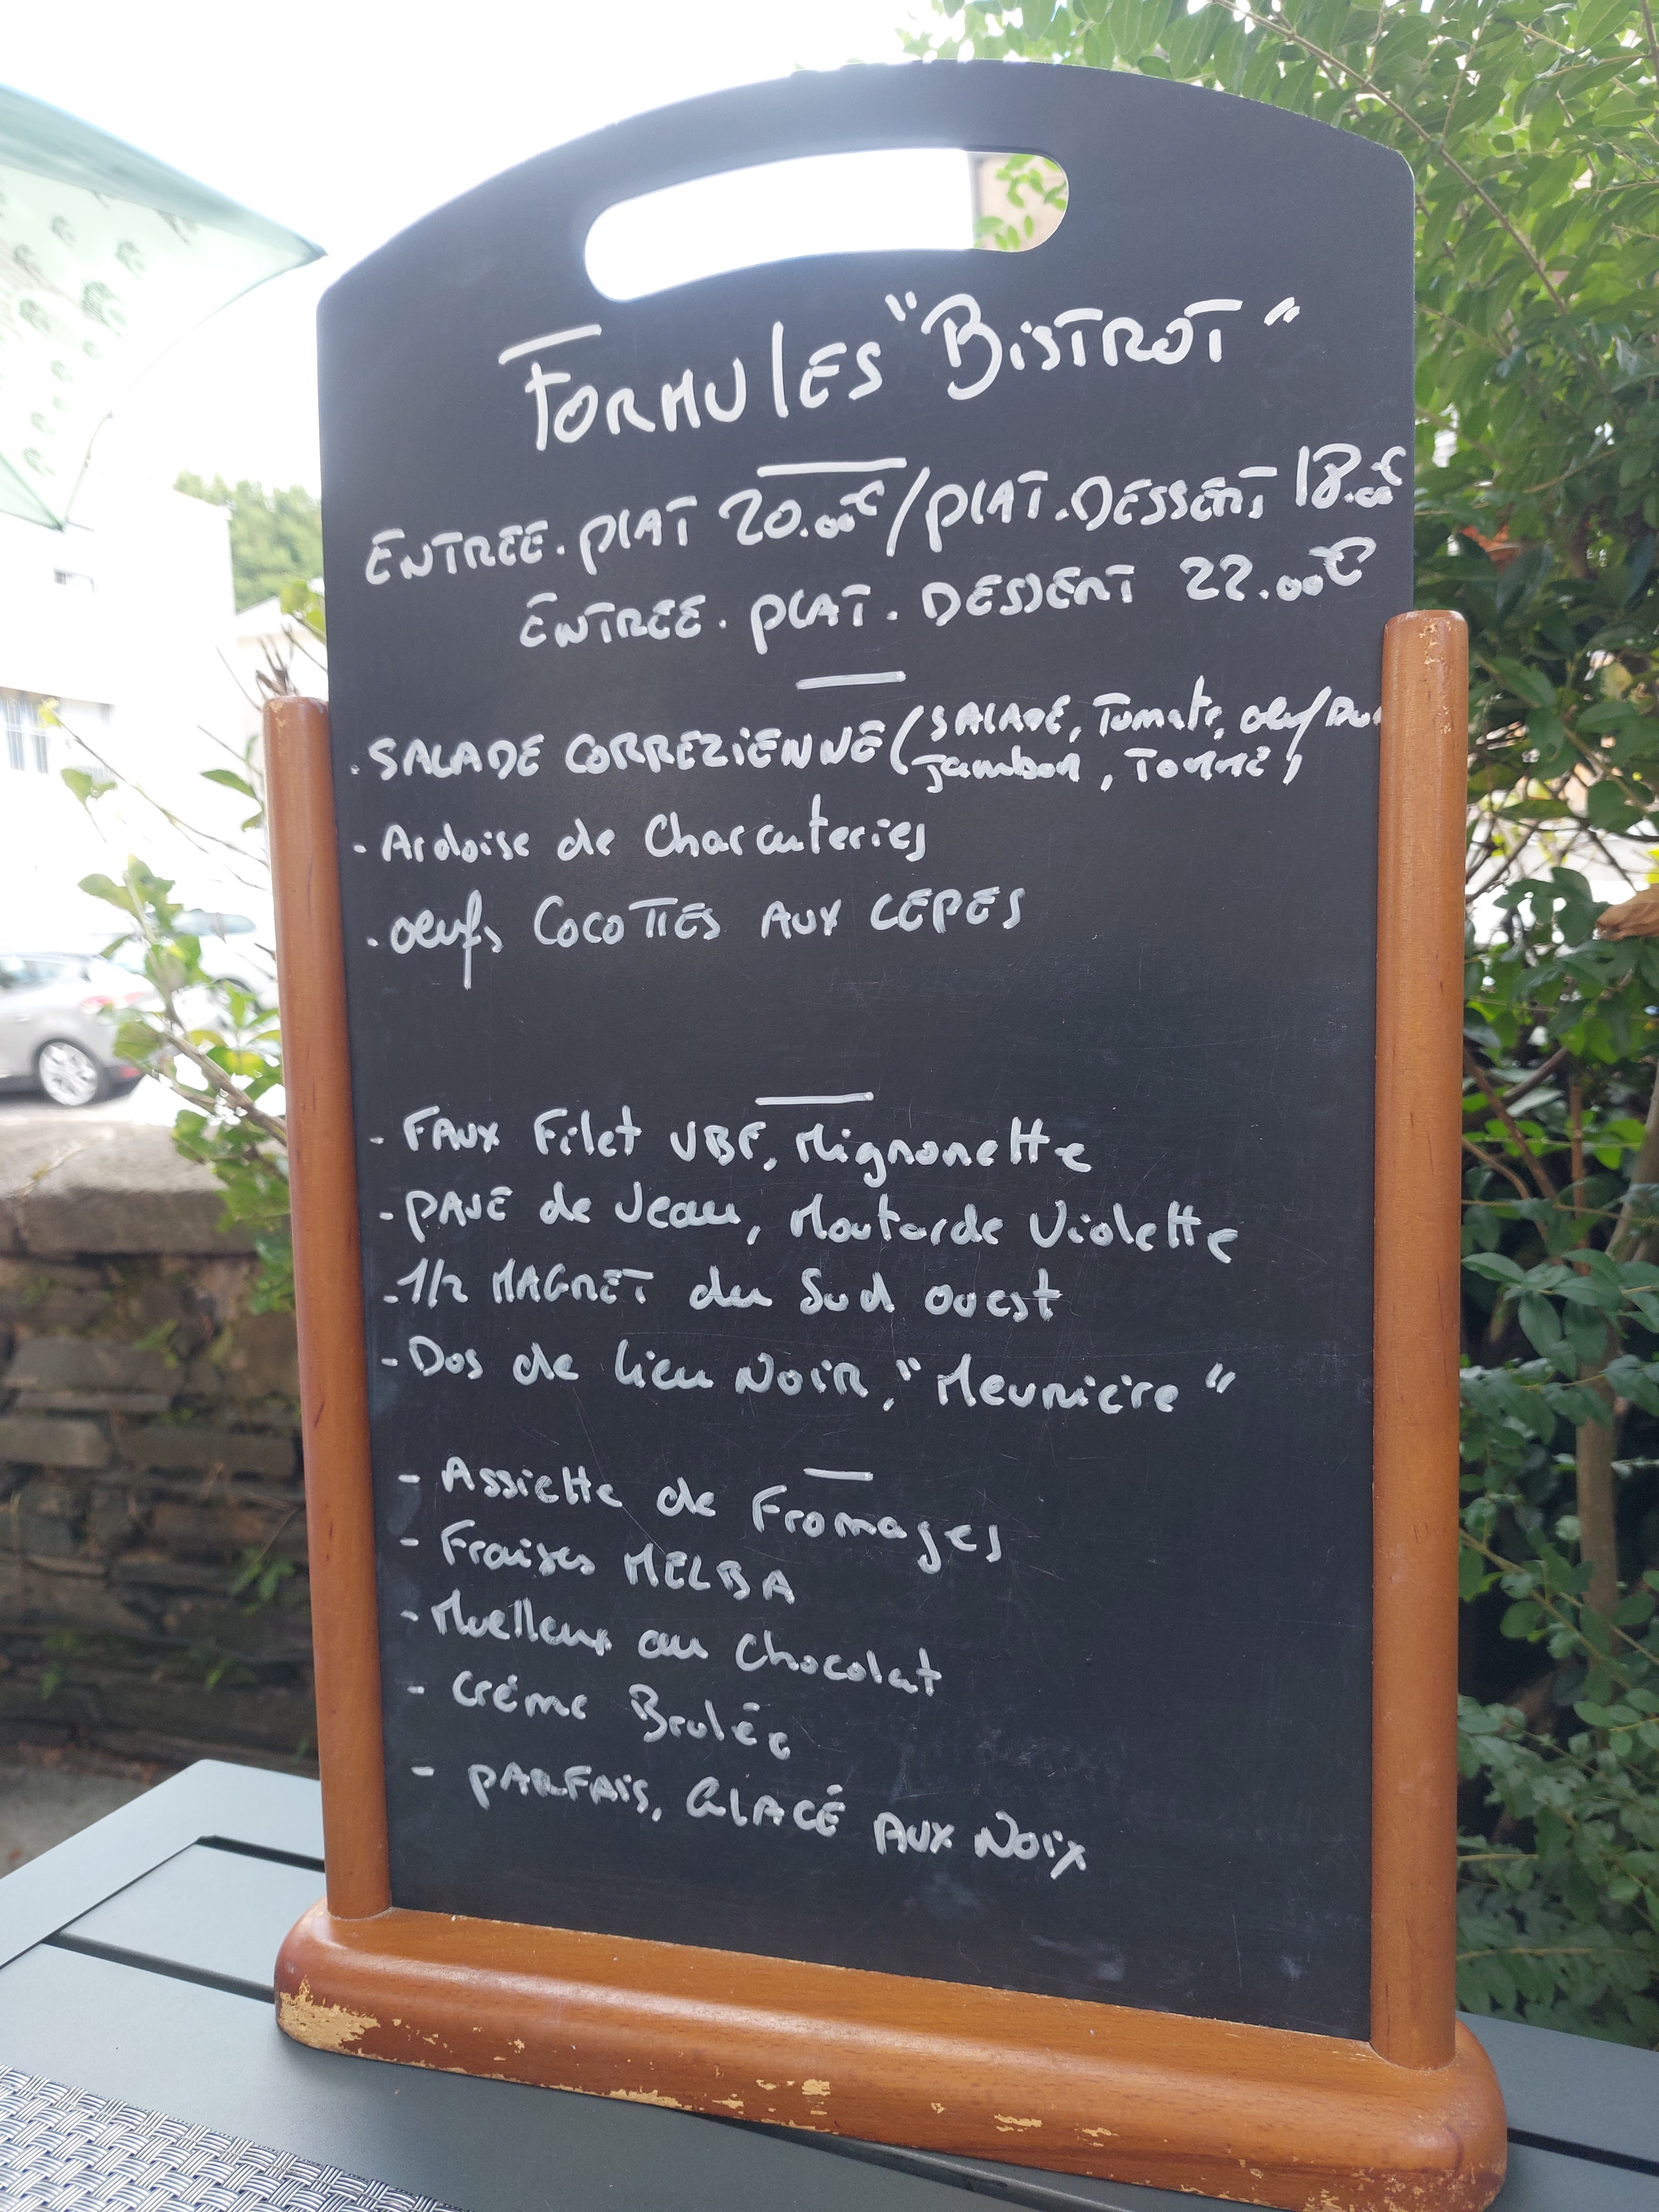 FORMULES "BISTROT"
ENTREE. PLAT 20.00€ / PLAT. DESSERT 18.00€
ENTREE. PLAT. DESSERT 22.00€
. SALADE CORREZIENNE (SALADE, Tomate, oeuf Dur
Jambon, TOMME)
- Ardoise de Charcuteries
. oeufs COCOTTES AUX CEPES
- FAUX Filet VBF, Mignonette
- PAVE de Veau, Moutarde Violette
- 1/2 MAGRET du Sud ouest
- Dos de lieu NOIR, "Meunière"
- Assiette de Fromages
- Fraises MELBA
- Moelleux au Chocolat
- Crème Brulée
- PARFAIS, GLACÉ AUX NOIX